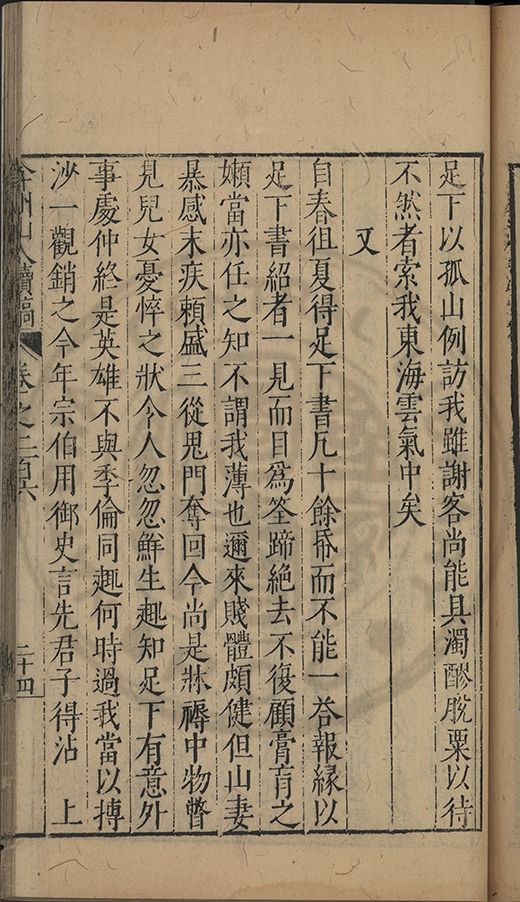 足下以孤山例訪我雖謝客尚能具濁醪脫粟以待
不然者索我東海雲氣中矣
又
自春徂夏得足下書凡十餘帋而不能一荅報緣以
足下書紹者一見而目爲筌蹄絶去不復顧膏肓之
嬾當亦任之知不謂我薄也邇來賤體頗健但山妻
暴感末疾頼盛三從鬼門奪回今尚是牀褥中物瞥
見兒女憂悴之狀令人忽忽鮮生趣知足下有意外
事處仲終是英雄不與季倫同趣何時過我當以摶
沙一觀銷之今年宗伯用御史言先君子得沾 上
弇州山人續稿 卷之二百六 二十四